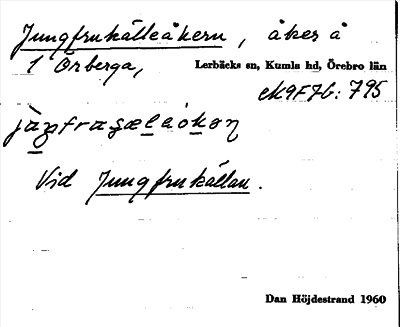 Jungfrukälleåkern, åker å
1 Örberga, Lerbäcks sn, Kumla hd, Örebro län
M9F7b: 795
Vid Jungfrukällan.
Dan Höjdestrand 1960